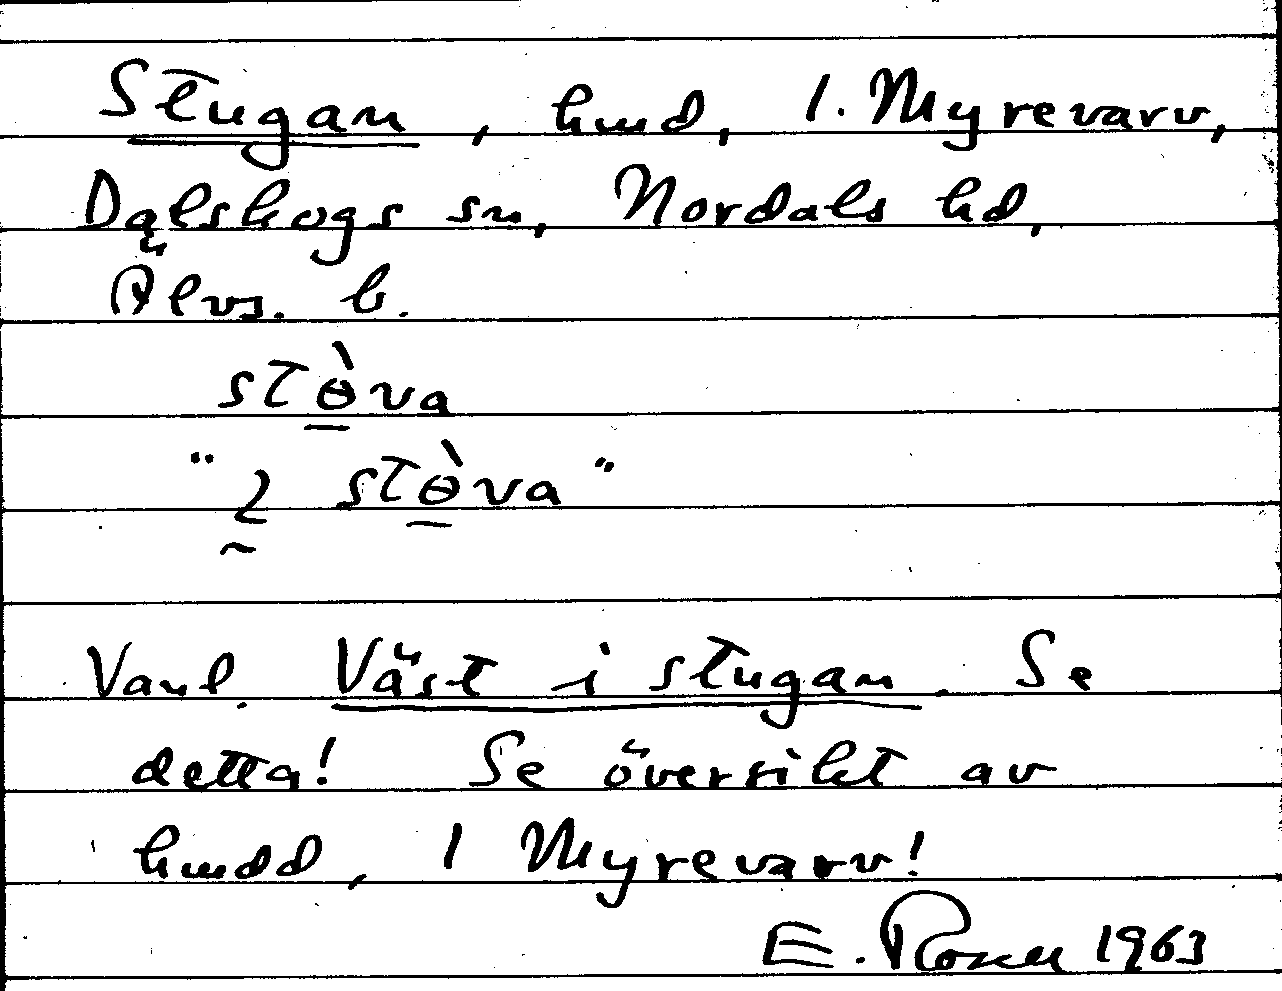 Stugan, hmd, 1. Myrevarv,
Dalskogs sn, Nordals hd,
Älvs. l.
stɵ̀va
"2 stɵ̀va"
Vanl. Väst i stugan. Se
detta! Se översikt av
hmdd, 1 Myrevarv!
E. Rosell 1963